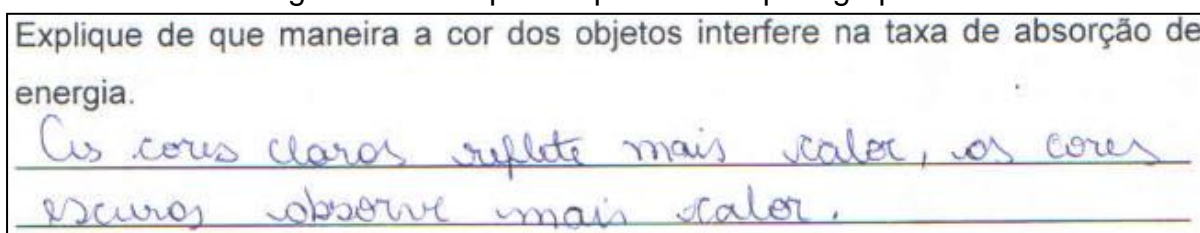 Explique de que maneira a cor dos objetos interfere na taxa de absorção de
energia.
As cores claras reflete mais calor, as cores
escuras absorve mais calor.